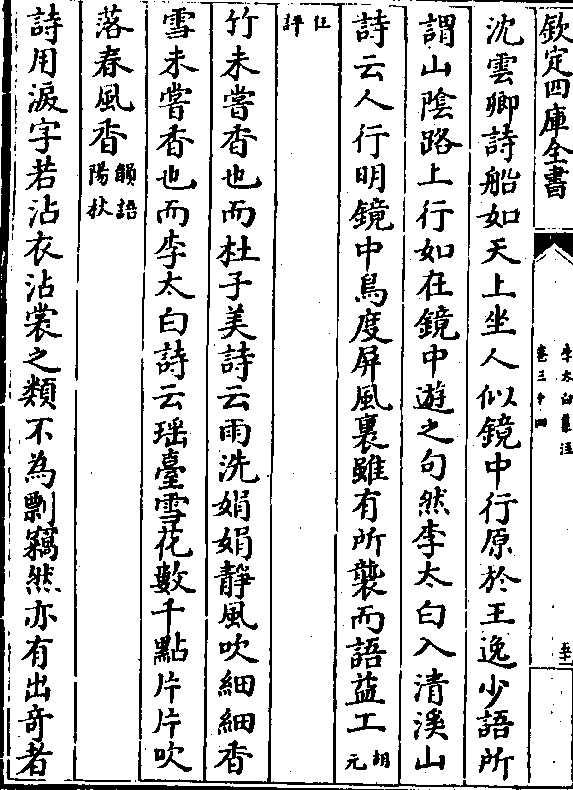 欽定四庫全書
李太白集注
卷三十四
沈雲卿詩船如天上坐人似鏡中行原於王逸少語所
謂山陰路上行如在鏡中遊之句然李太白入清溪山
詩云人行明鏡中鳥度屏風裏雖有所襲而語益工胡元
任評
竹未嘗香也而杜子美詩云雨洗娟娟靜風吹細細香
雪未嘗香也而李太白詩云瑶臺雪花數千點片片吹
落春風香韻語陽秋
詩用淚字若沾衣沾裳之類不為剽竊然亦有出奇者